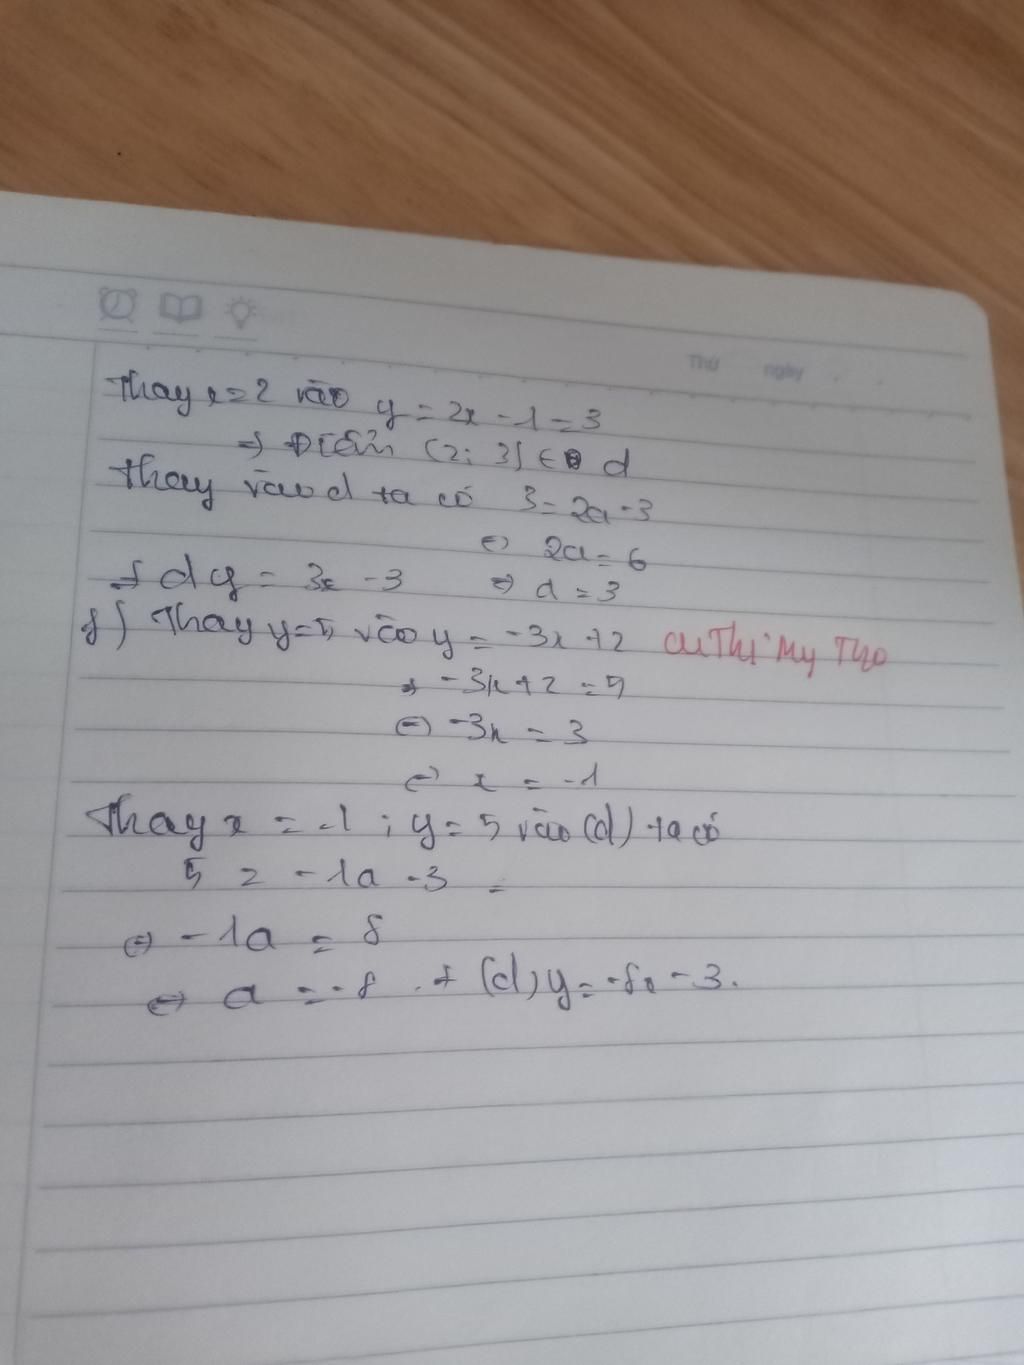 Thứ ngày
Thay x=2 vào y = 2x - 1 = 3
⇒ Điểm (2; 3) ∈ d
Thay vào d ta có 3 = 2a - 3
⇔ 2a = 6
⇒ d y = 3x - 3 ⇔ a = 3
f) Thay y=5 vào y = -3x + 2 CuThị Mỹ Thọ
⇒ -3x + 2 = 5
⇔ -3x = 3
⇔ x = -1
Thay x = -1 ; y = 5 vào (d) ta có
5 = -1a - 3 =
⇔ -1a = 8
⇔ a = -8 . ⇒ (d) y = -8x - 3.